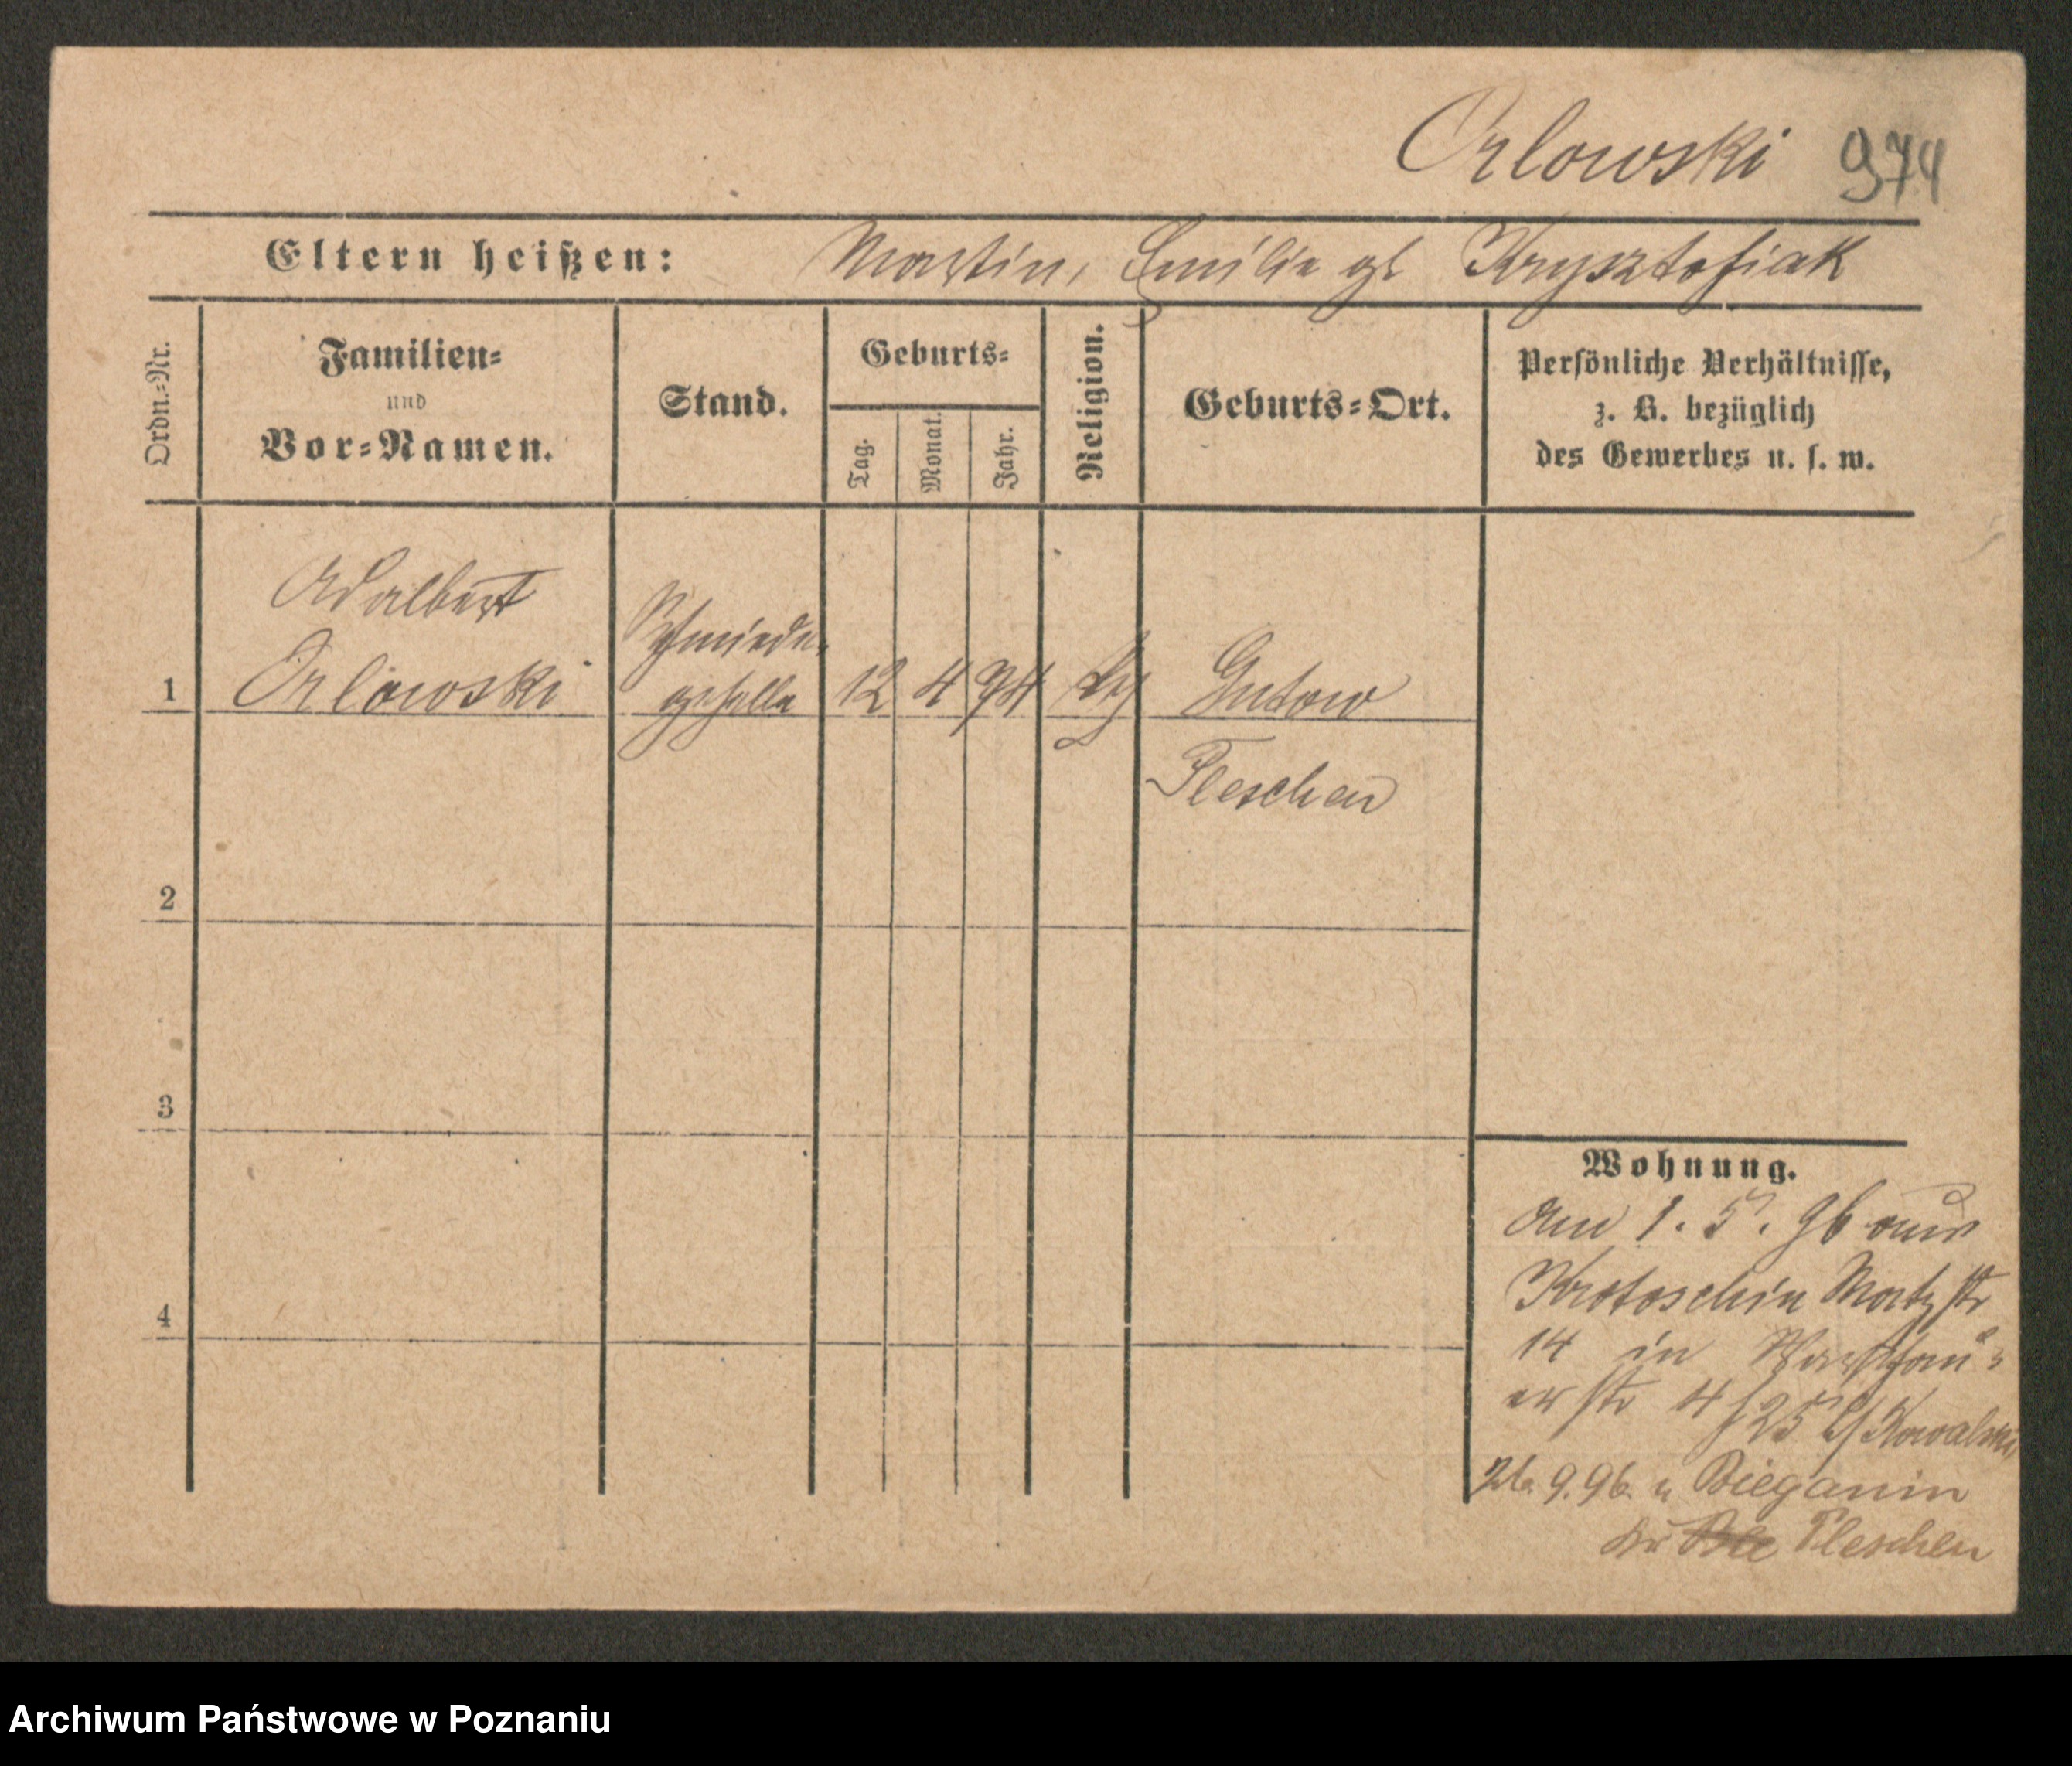 Orlowski 974
Eltern heißen: Martin, Emilie gb Krysztofiak
Ordn.=Nr.
Familien=
und
Vor=Namen.
Stand.
Geburts=
Tag.
Monat.
Jahr.
Religion.
Geburts=Ort.
Persönliche Verhältnisse,
z. B. bezüglich
des Gewerbes u. s. w.
Adalbert
Schmiede-
1 Orlowski geselle 12 4 74 Gutow
Pleschen
2
3
4
Wohnung.
Am 1. 5. 96 aus
Krotoschin str
14 in Warschau=
er str 4 Kowalski
9.96. n Bieganin
Kr Pleschen
Archiwum Państwowe w Poznaniu